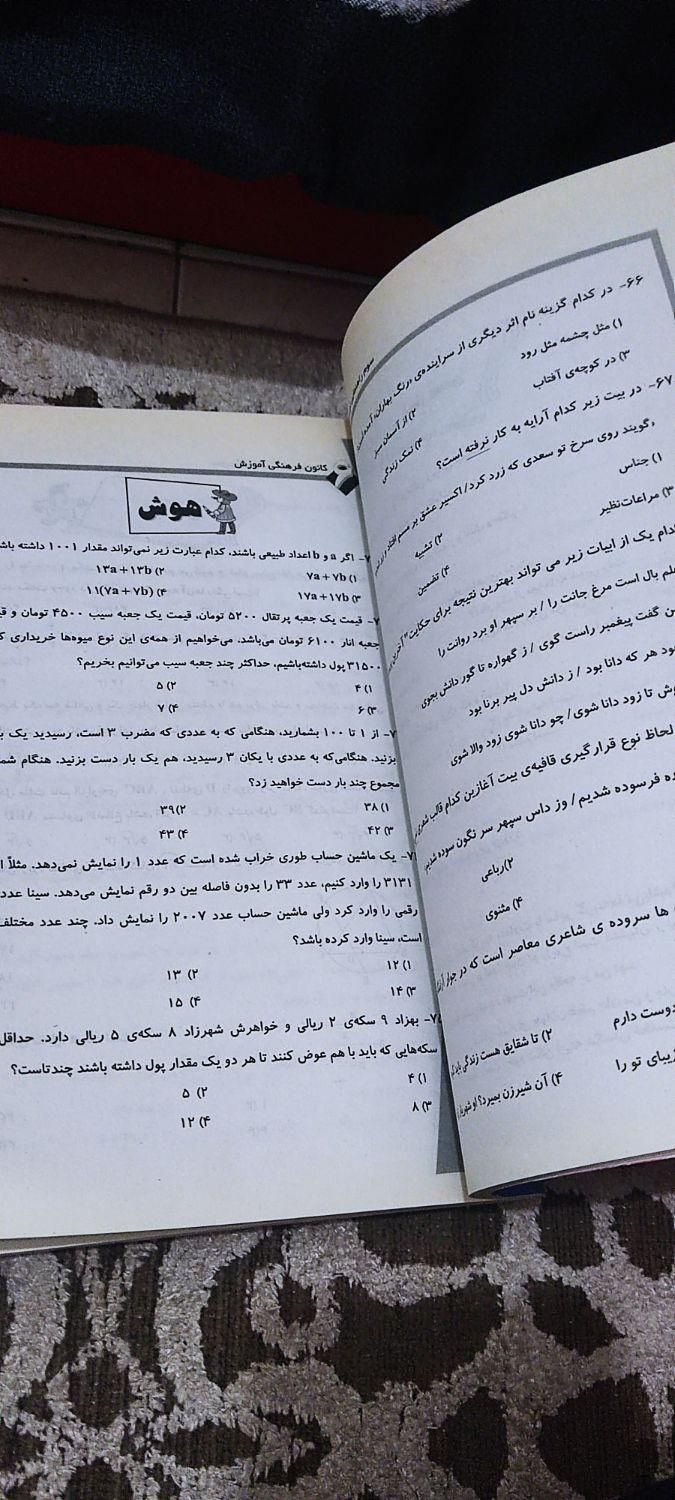 ۶۶- در کدام گزینه نام اثر دیگری از سراینده‌ی «رنگ بهاران»
۱) مثل چشمه مثل رود
۲) از آسمان سبز
۳) در کوچه‌ی آفتاب
۴) نمک زندگی
۶۷- در بیت زیر کدام آرایه به کار نرفته است؟
گویند روی سرخ تو سعدی که زرد کرد/ اکسیر عشق بر مسم افتاد و زر
۱) جناس
۲) تشبیه
۳) مراعات‌نظیر
۴) تضمین
کدام یک از ابیات زیر می تواند بهترین نتیجه برای حکایت
علم بال است مرغ جانت را / بر سپهر او برد روانت را
گفت پیغمبر راست گوی / ز گهواره تا گور دانش بجوی
بود هر که دانا بود / ز دانش دل پیر برنا بود
تا زود دانا شوی/ چو دانا شوی زود والا شوی
لحاظ نوع قرار گیری قافیه‌ی بیت آغازین کدام قالب
فرسوده شدیم/ وز داس سپهر سر نگون سوده شدیم
۲)رباعی
۴) مثنوی
ها سروده ی شاعری معاصر است که در جوار
دوست دارم
۲) تا شقایق هست زندگی باید
زیبای تو را
۴) آن شیرزن بمیرد؟
سوم
کانون فرهنگی آموزش
هوش
اگر a و b اعداد طبیعی باشند، کدام عبارت زیر نمی‌تواند مقدار ۱۰۰۱ داشته
۱) ۷a + ۷b
۲) ۱۳a + ۱۳b
۳) ۱۷a + ۱۷b
۴) ۱۱(۷a + ۷b)
قیمت یک جعبه پرتقال ۵۲۰۰ تومان، قیمت یک جعبه سیب ۴۵۰۰ تومان و
جعبه انار ۶۱۰۰ تومان می‌باشد، می‌خواهیم از همه‌ی این نوع میوه‌ها خریداری
۳۱۵۰۰ پول داشته‌باشیم، حداکثر چند جعبه سیب می‌توانیم بخریم؟
۱) ۴
۲) ۵
۳) ۶
۴) ۷
از ۱ تا ۱۰۰ بشمارید، هنگامی که به عددی که مضرب ۳ است، رسیدید یک
بزنید. هنگامی‌که به عددی با یکان ۳ رسیدید، هم یک بار دست بزنید. هنگام
مجموع چند بار دست خواهید زد؟
۱) ۳۸
۲)۳۹
۳) ۴۲
۴) ۴۳
یک ماشین حساب طوری خراب شده است که عدد ۱ را نمایش نمی‌دهد. مثلاً
۳۱۳۱ را وارد کنیم، عدد ۳۳ را بدون فاصله بین دو رقم نمایش می‌دهد. سینا
رقمی را وارد کرد ولی ماشین حساب عدد ۲۰۰۷ را نمایش داد. چند عدد مختلف
است، سینا وارد کرده باشد؟
۱) ۱۲
۲) ۱۳
۳) ۱۴
۴) ۱۵
بهزاد ۹ سکه‌ی ۲ ریالی و خواهرش شهرزاد ۸ سکه‌ی ۵ ریالی دارد. حداقل
سکه‌هایی که باید با هم عوض کنند تا هر دو یک مقدار پول داشته باشند چندتاست؟
۱) ۴
۲) ۵
۳) ۸
۴) ۱۲